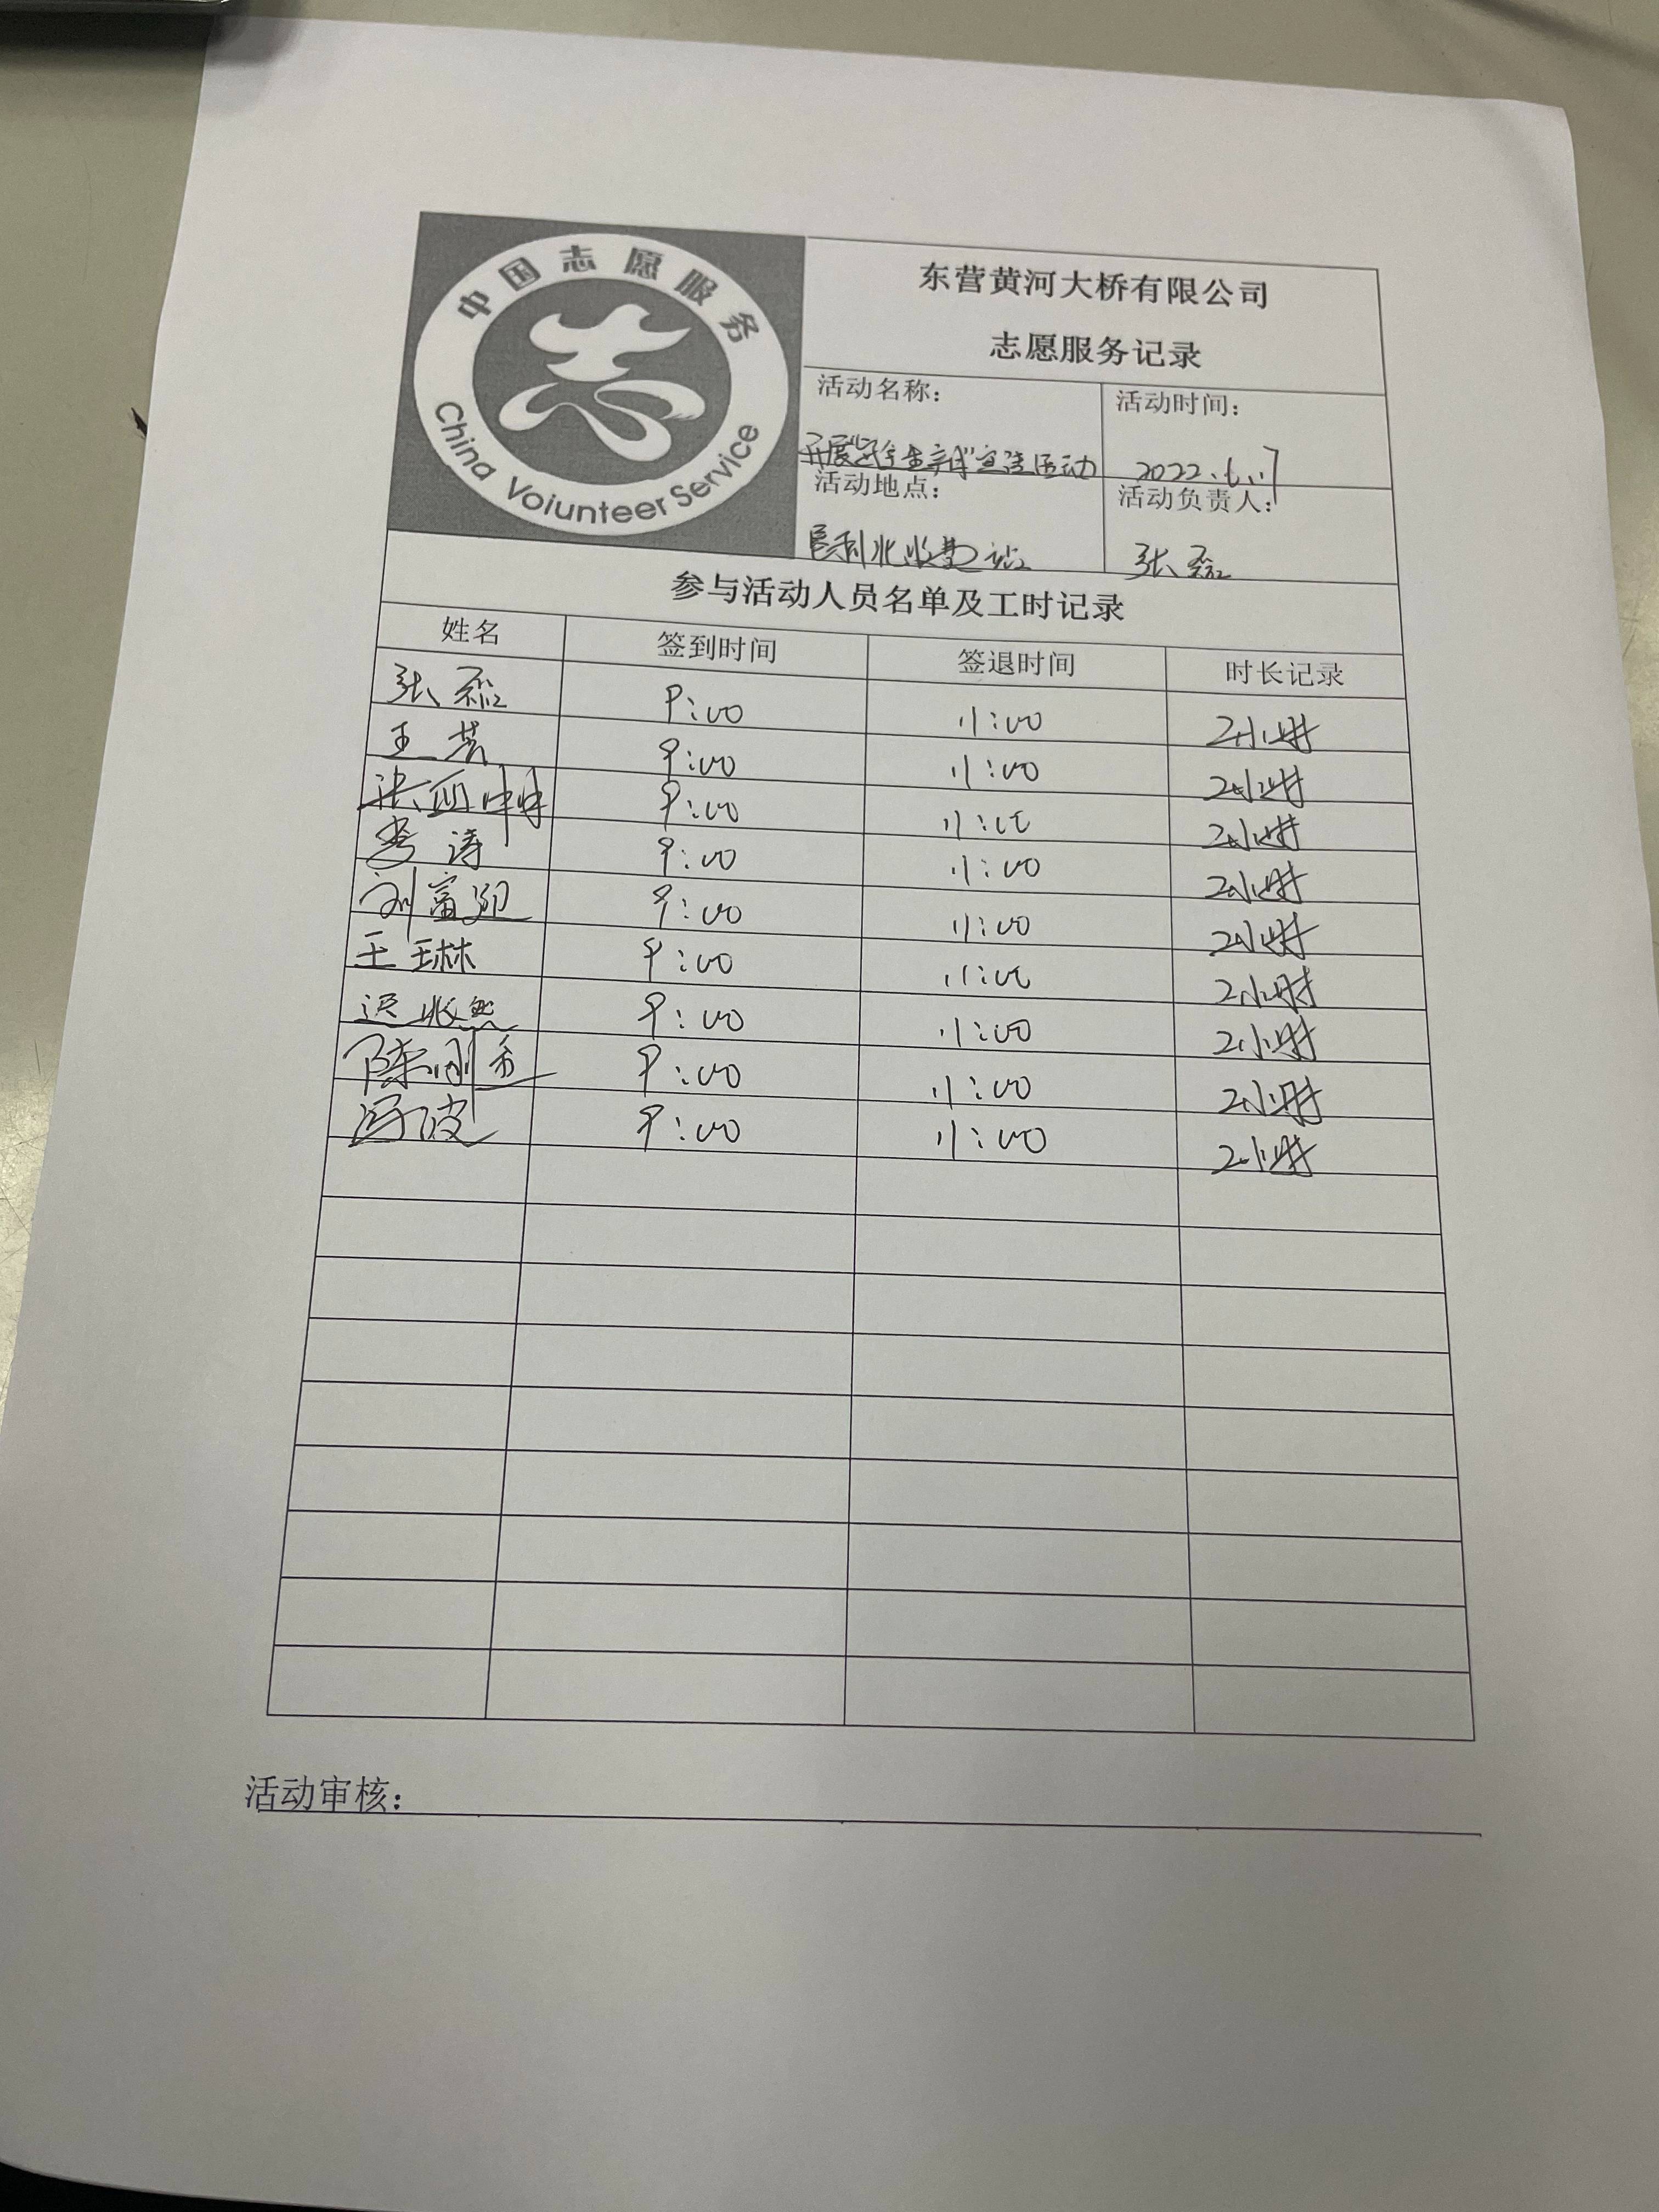 中国志愿服务
China Voiunteer Service
东营黄河大桥有限公司
志愿服务记录
活动名称： 活动时间：
开展"安全生产月"宣传活动 2022.6.17
活动地点： 活动负责人：
垦利北收费站 张磊
参与活动人员名单及工时记录
姓名 签到时间 签退时间 时长记录
张磊 9:00 11:00 2小时
王芸 9:00 11:00 2小时
张 9:00 11:00 2小时
李涛 9:00 11:00 2小时
刘富 9:00 11:00 2小时
王琳 9:00 11:00 2小时
迟 9:00 11:00 2小时
陈刚 9:00 11:00 2小时
冯波 9:00 11:00 2小时
活动审核：